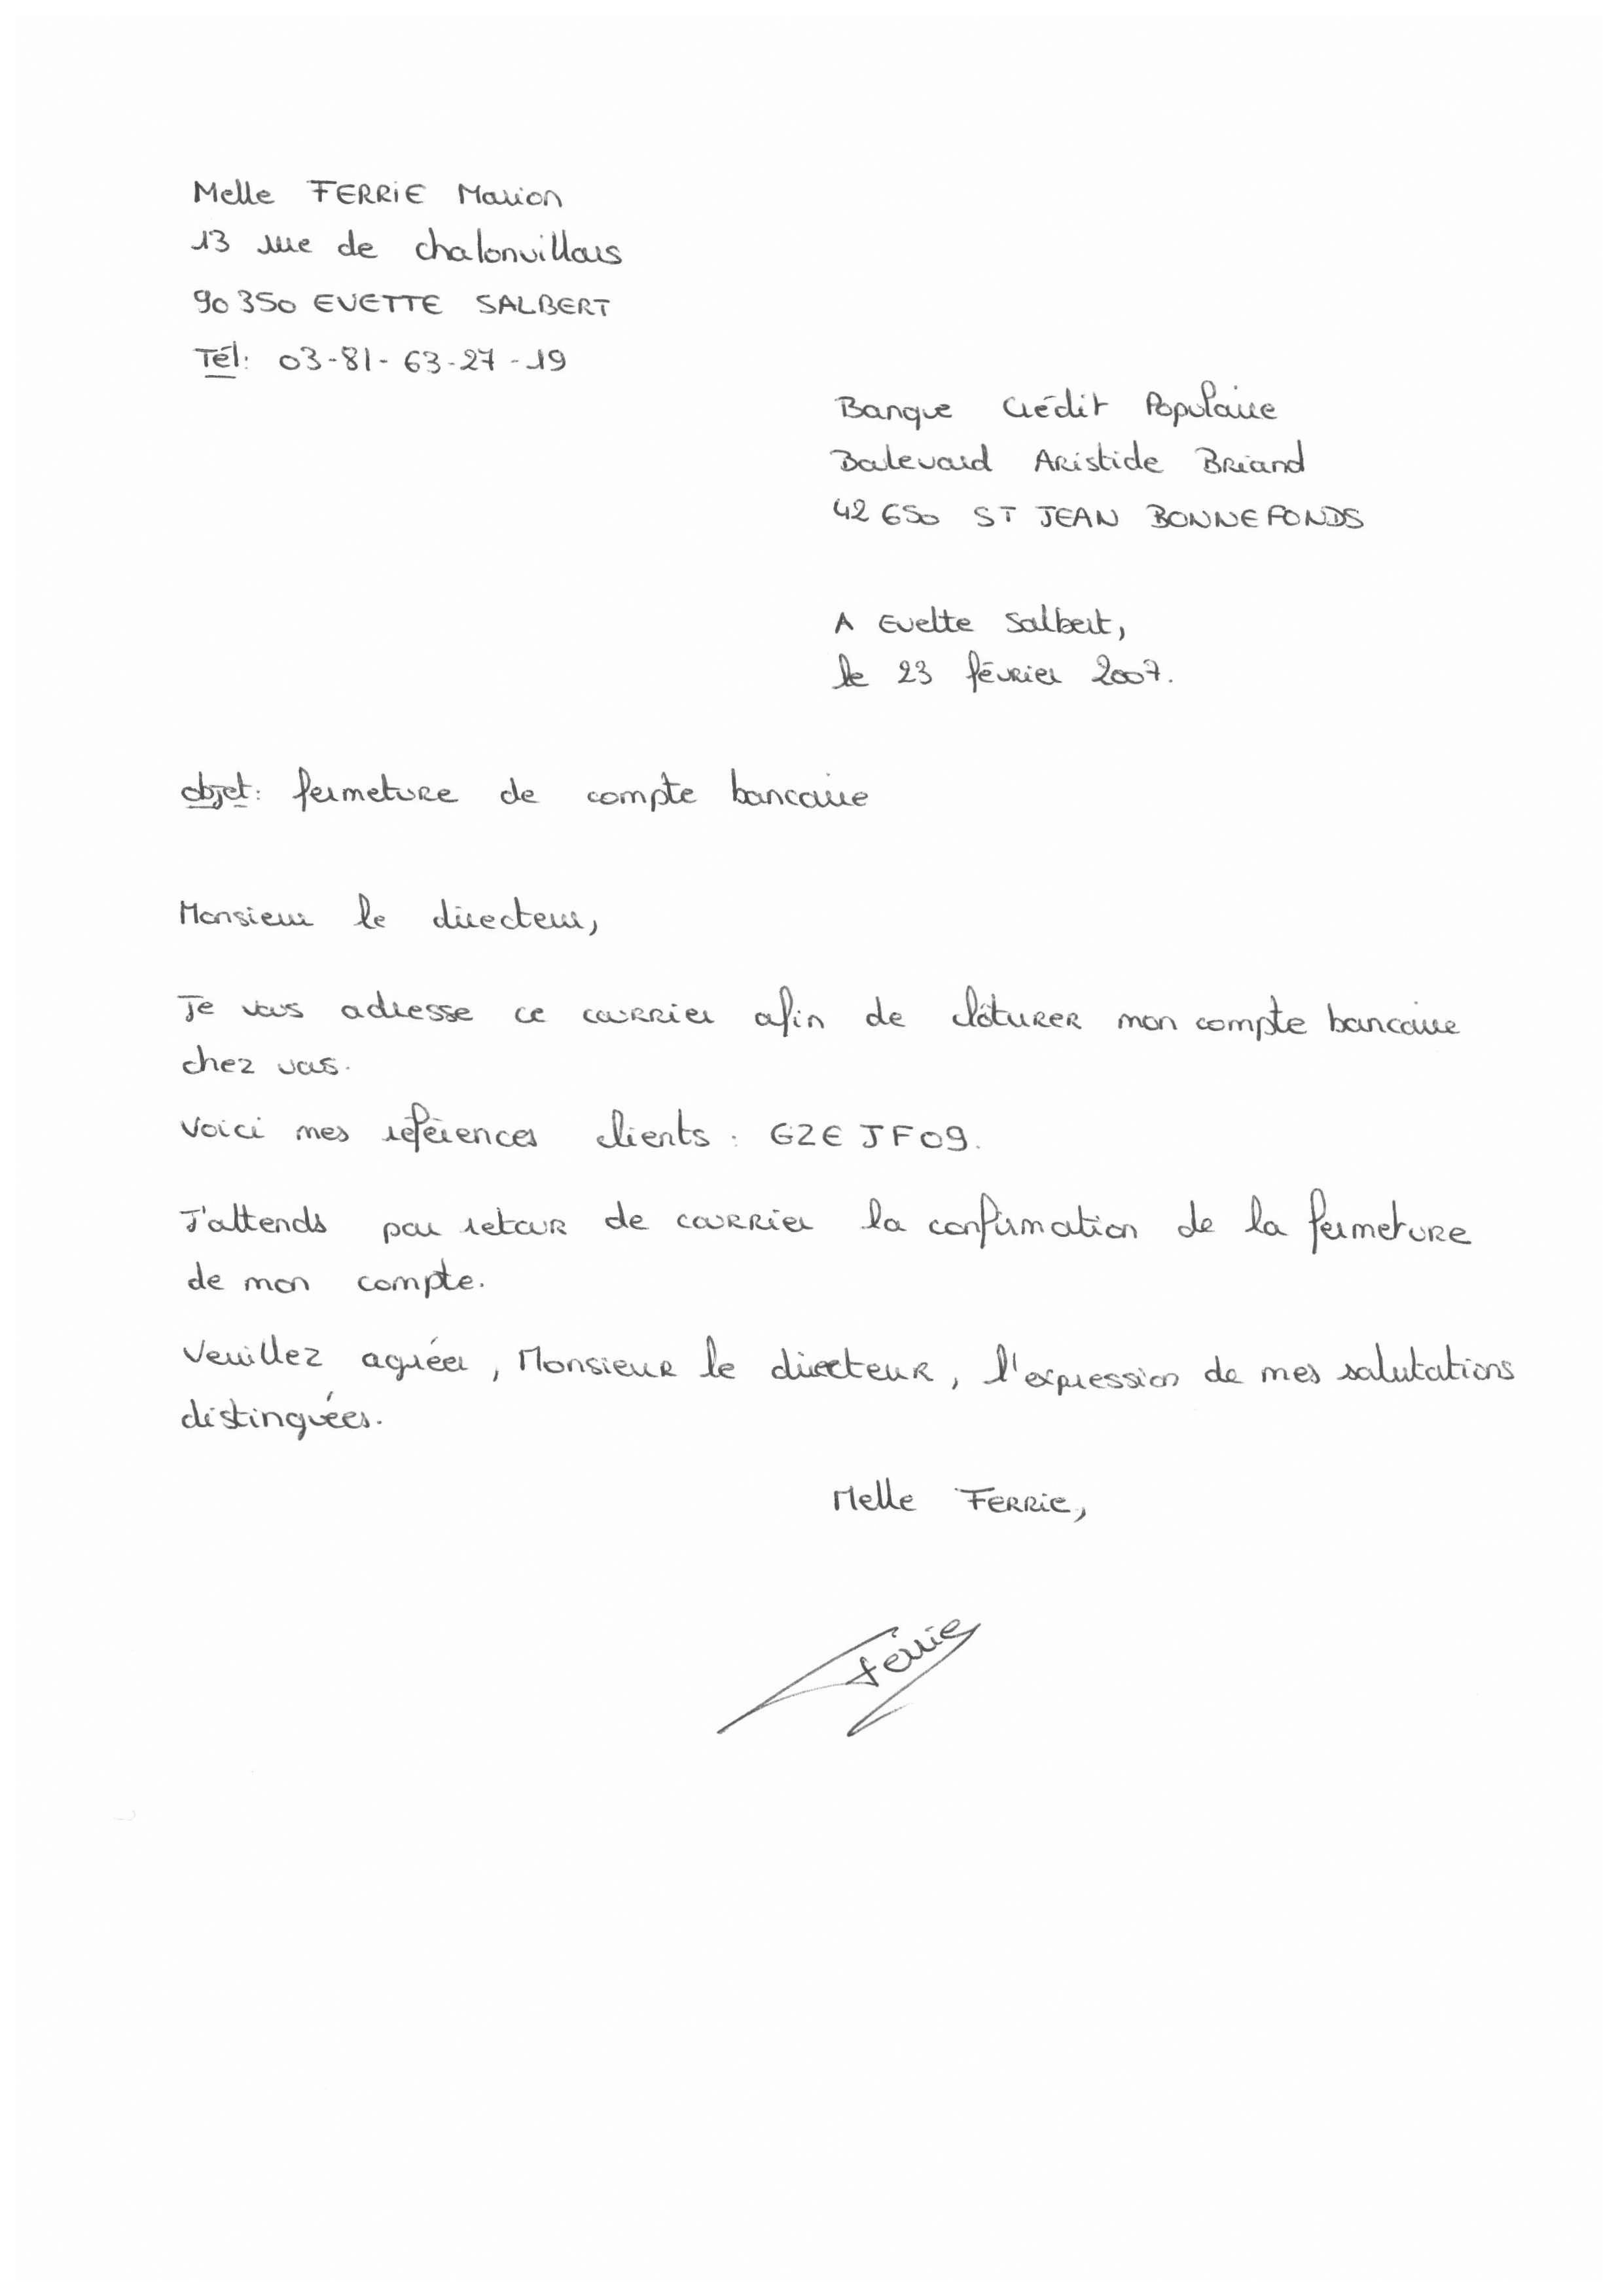 Melle FERRIE Marion
13 rue de chalonvillars
90350 EVETTE SALBERT
Tél: 03-81-63-27-19
Banque Crédit Populaire
Boulevard Aristide Briand
42650 ST JEAN BONNEFONDS
A Evette Salbert,
le 23 février 2007.
objet: fermeture de compte bancaire
Monsieur le directeur,
Je vous adresse ce courrier afin de clôturer mon compte bancaire
chez vous.
Voici mes références clients : GZEJF09.
J'attends par retour de courrier la confirmation de la fermeture
de mon compte.
Veuillez agréer, Monsieur le directeur, l'expression de mes salutations
distinguées.
Melle FERRIE,
Ferrie